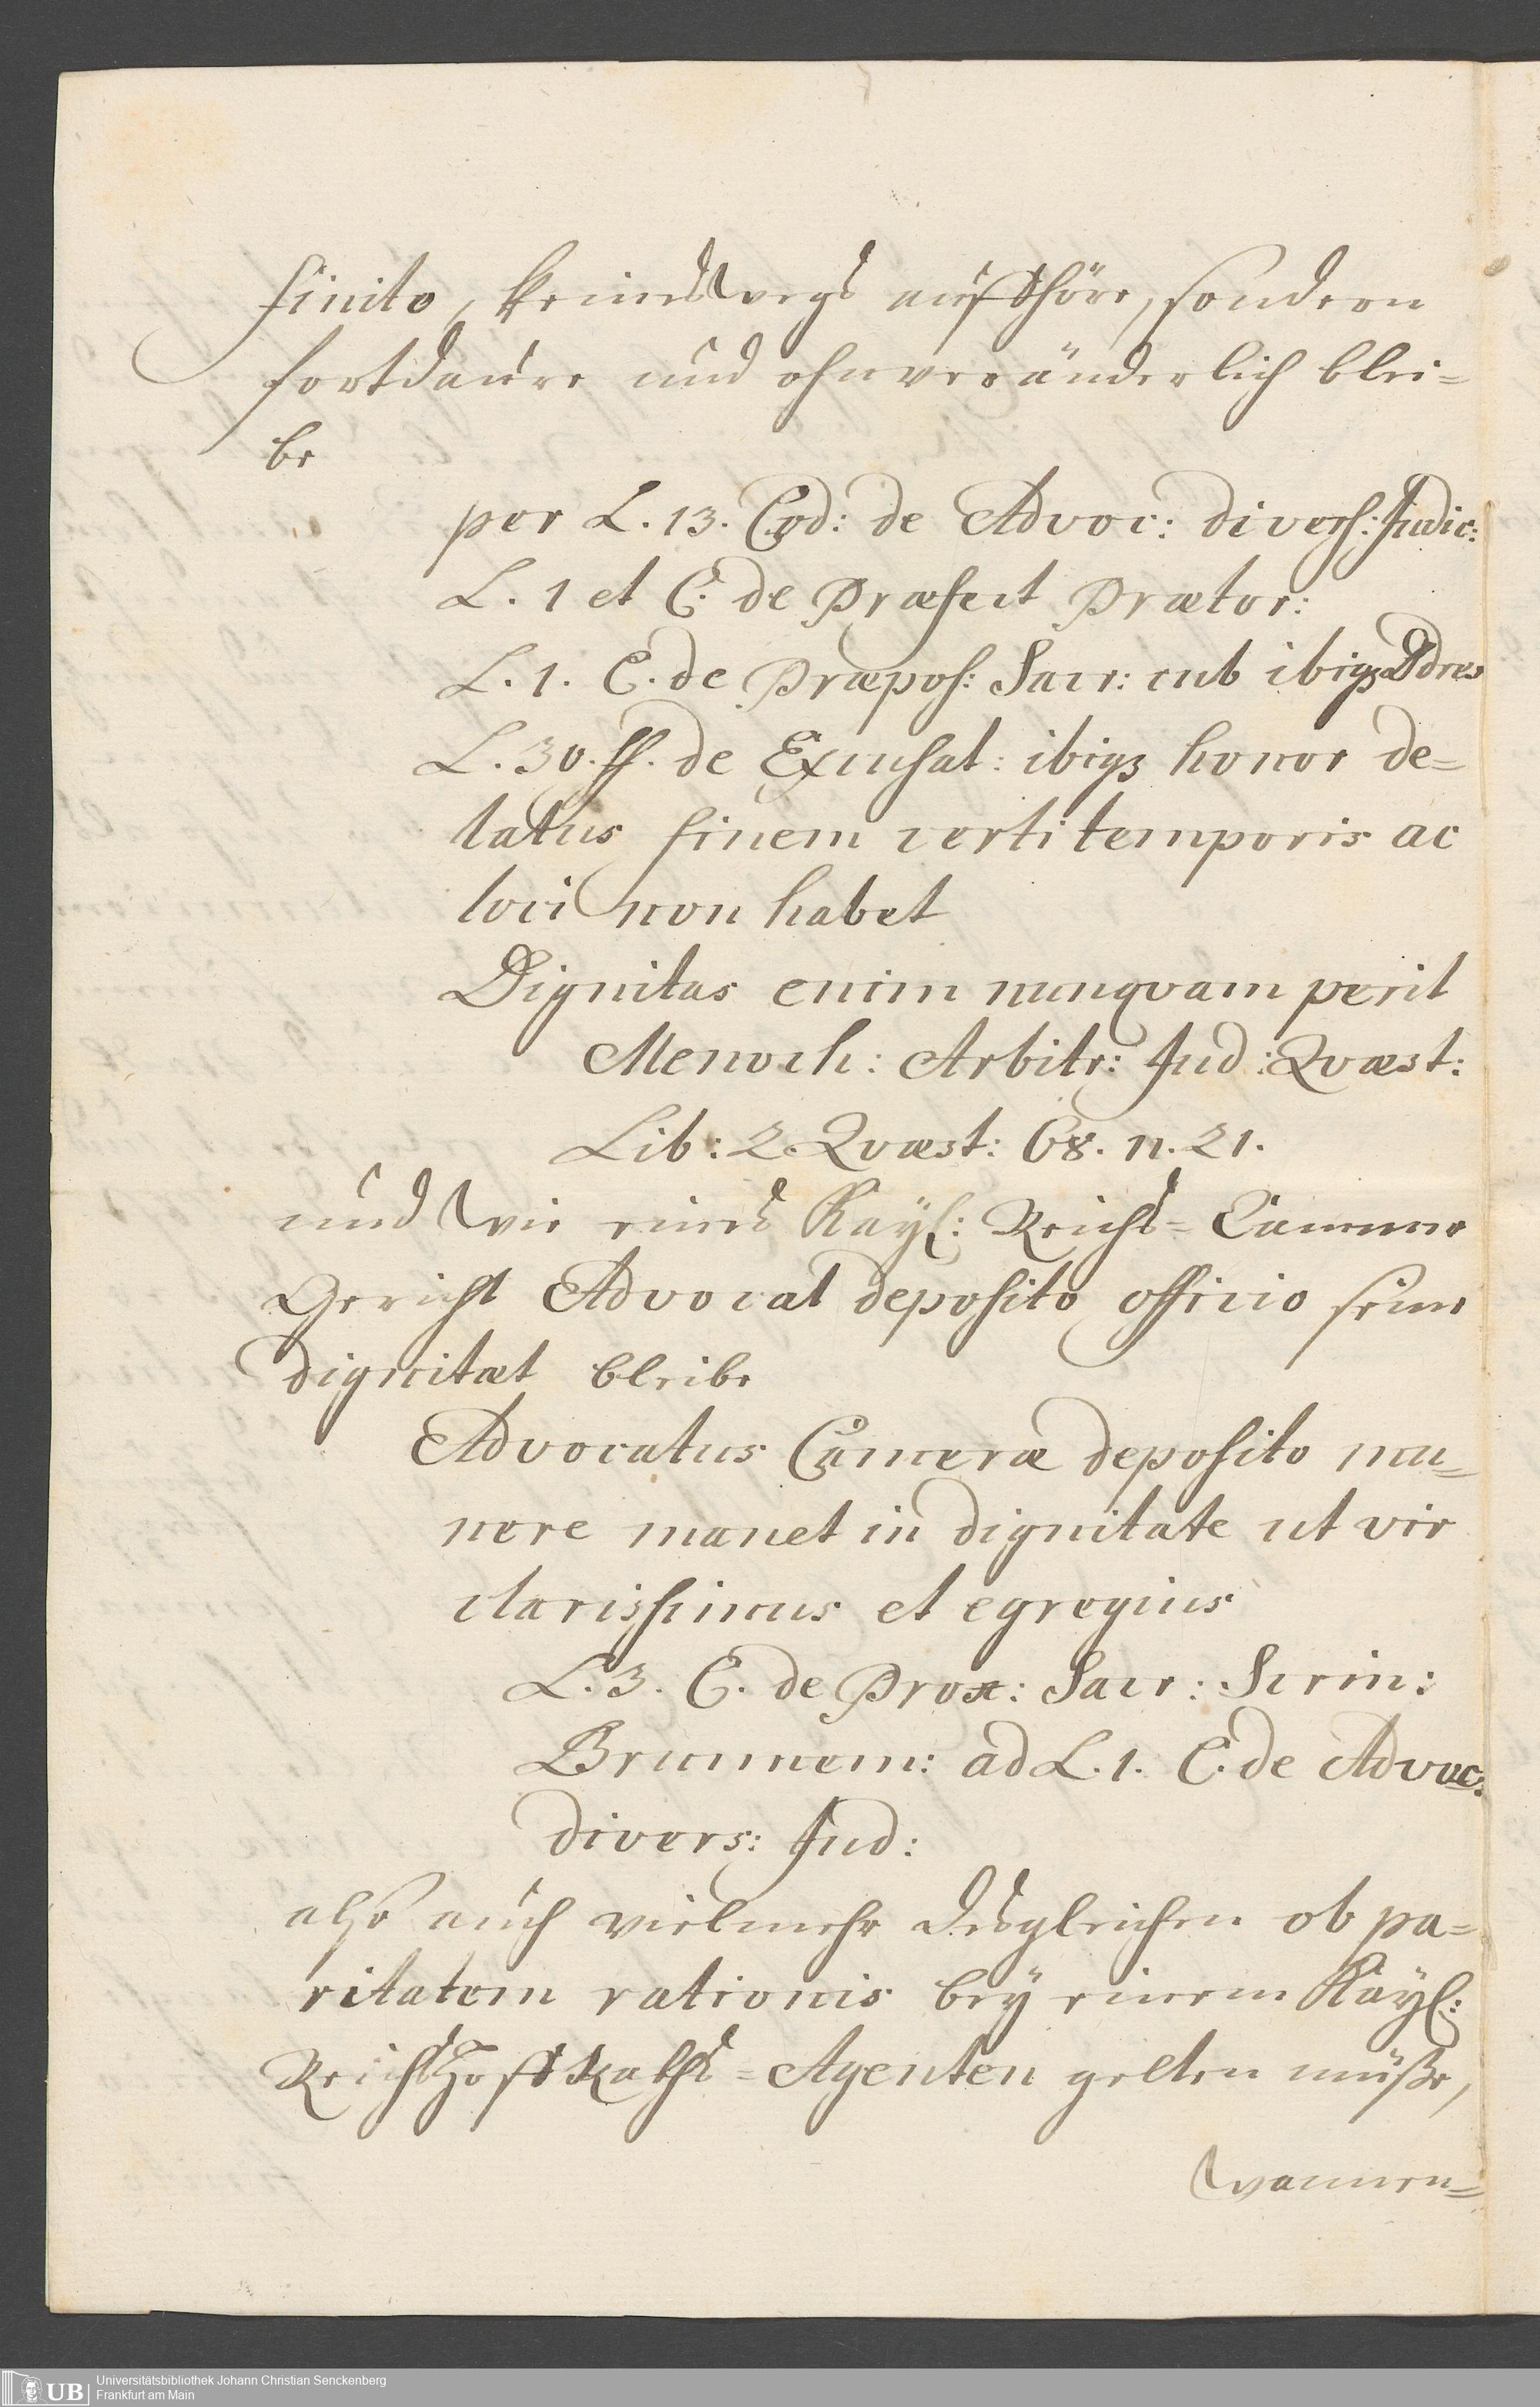 finito, keineswegs aufhöre, sondern
fortdaure und ohnveränderlich blei=
be
per L. 13. Cod: de Advoc: divers: Judic:
L. 1 et C. de Præfect Prætor:
L. 1. C. de Præpos: Sacr: cub ibiq
L. 30. ff. de Excusat: ibiq honor de=
latus finem certi temporis ac
loci non habet
Dignitas enim nunqvam perit
Menoch: Arbitr: Jud: Qvæst:
Lib: 2. Qvæst: 68. n. 21.
und wie eines Kayß: Reichs=Cammer
Gericht Advocat deposito officio seine
dignitæt bleibe
Advocatus Cameræ deposito mu=
nere manet in dignitate ut vir
clarissimus et egregius
L. 3. C. de Prox: Sacr: Scrin:
Brunnem: ad L. 1. C. de Advoc:
divers: Jud:
also auch vielmehr desgleichen ob pa=
ritatem rationis bey einem Kayß:
Reichs Hoff Raths=Agenten gelten müße,
wannen=
UB Universitätsbibliothek Johann Christian Senckenberg
Frankfurt am Main